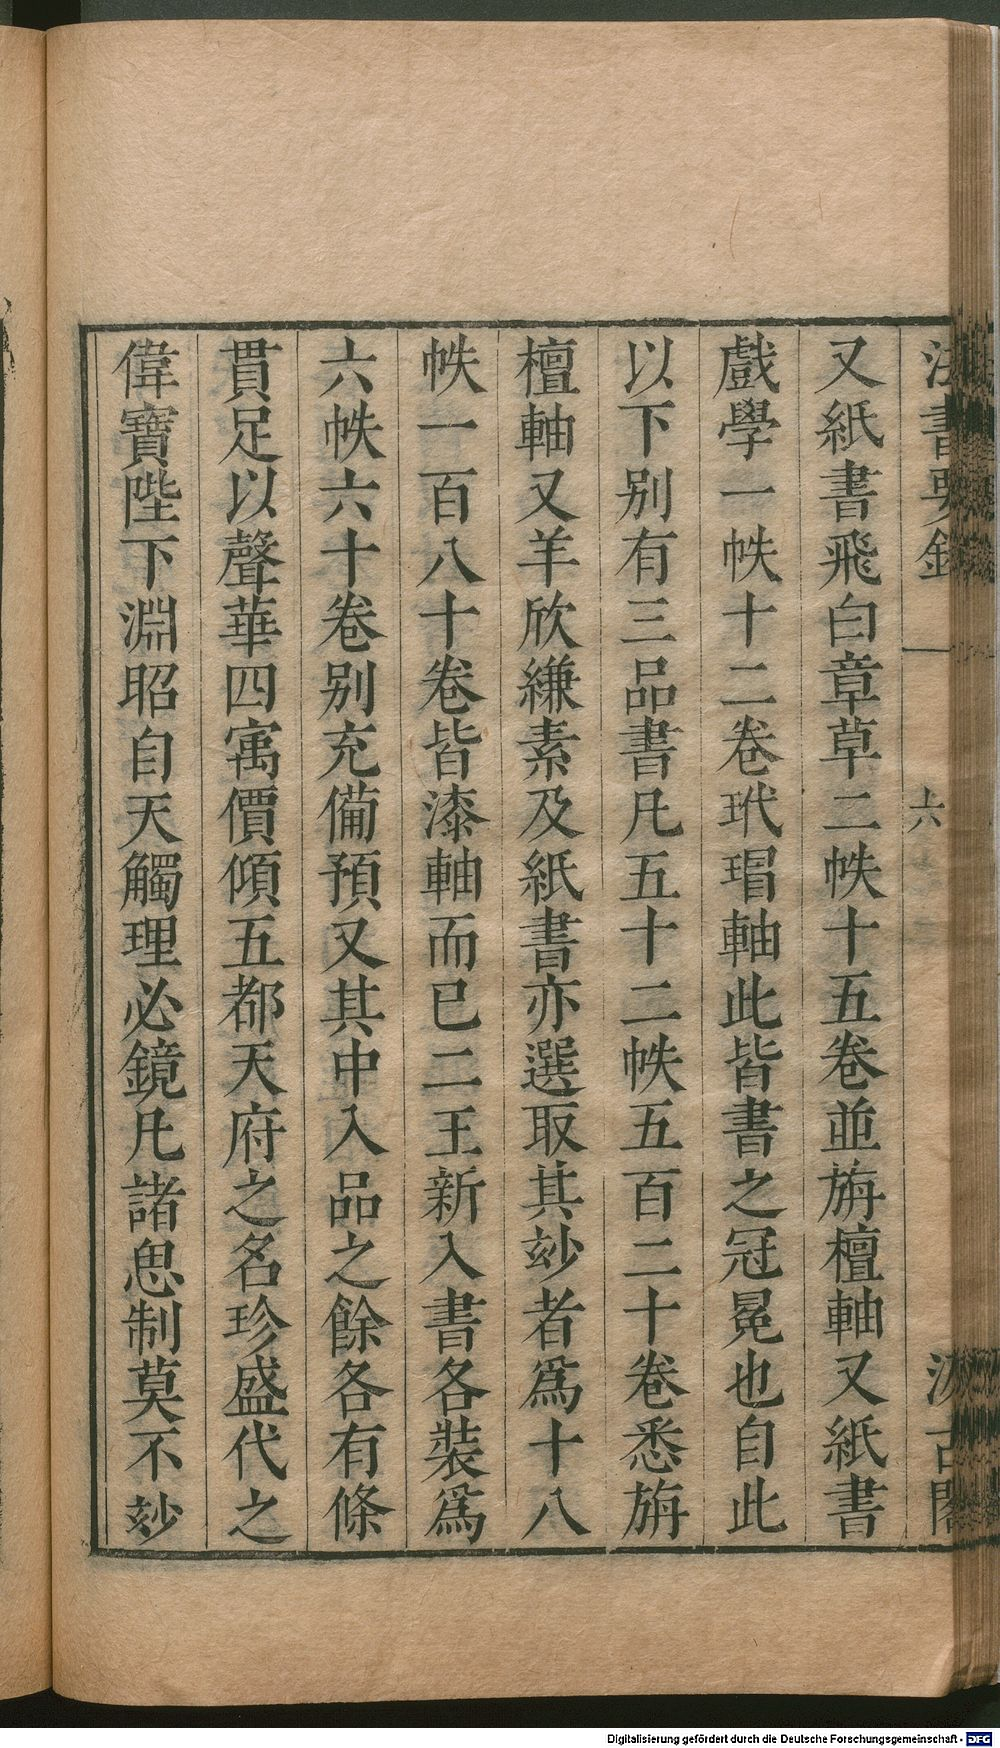 法書要錄
六
汲古閣
又紙書飛白章草二帙十五卷並旃檀軸又紙書
戲學一帙十二卷玳瑁軸此皆書之冠冕也自此
以下別有三品書凡五十二帙五百二十卷悉旃
檀軸又羊欣縑素及紙書亦選取其玅者爲十八
帙一百八十卷皆漆軸而已二王新入書各裝爲
六帙六十卷別充備預又其中入品之餘各有條
貫足以聲華四寓價傾五都天府之名珍盛代之
偉寶陛下淵昭自天觸理必鏡凡諸思制莫不玅
Digitalisierung gefördert durch die Deutsche Forschungsgemeinschaft - DFG